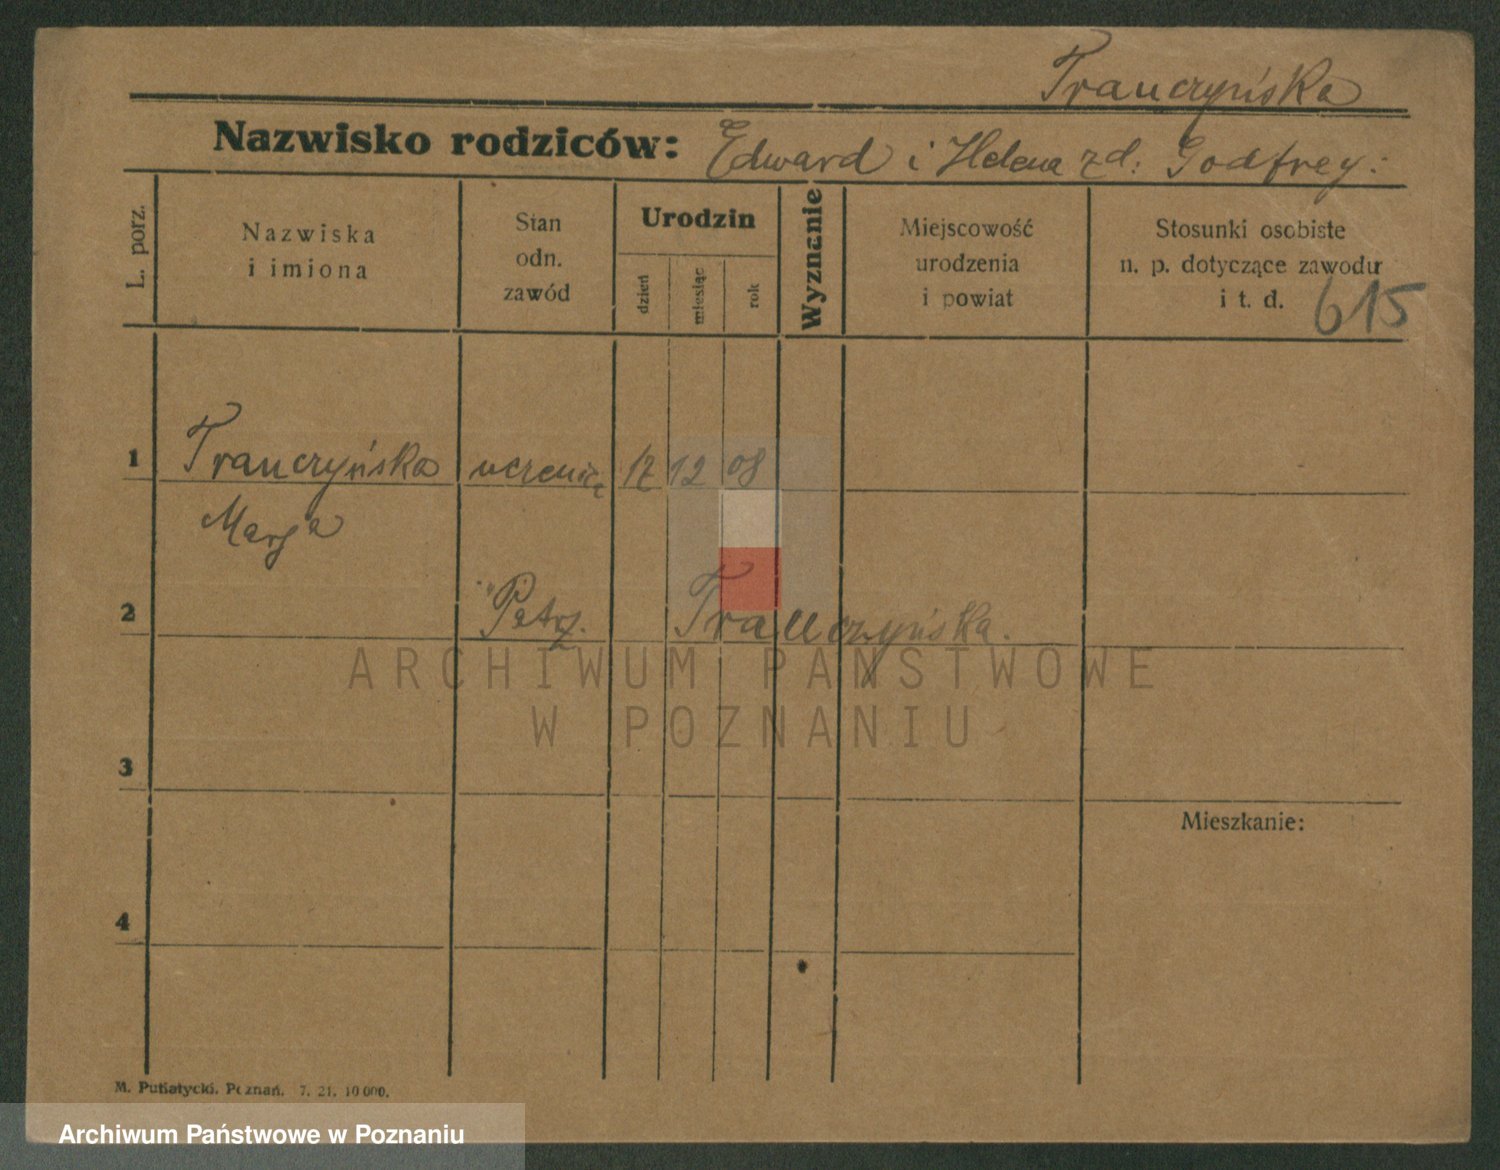 Trauczyńska
Nazwisko rodziców: Edward i Helena zd. Godfrey.
L. porz.
Nazwiska
i imiona
Stan
odn.
zawód
Urodzin
dzień
miesiąc
rok
Wyznanie
Miejscowość
urodzenia
i powiat
Stosunki osobiste
n. p. dotyczące zawodu
i t. d.
615
1 Trauczyńska 12 08
2 Trauczyńska.
3
Mieszkanie:
4
M. Putiatycki. Poznań. 7. 21. 10 000.
ARCHIWUM PAŃSTWOWE
W POZNANIU
Archiwum Państwowe w Poznaniu